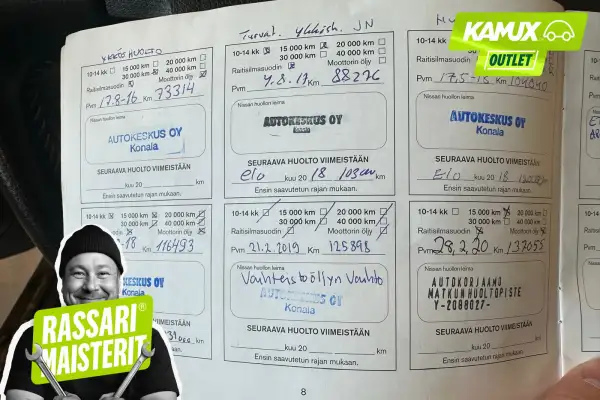 YKKÖS HUOLTO
10-14 kk 15 000 km 20 000 km
30 000 km 40 000 km
Raitisilmasuodin Moottorin öljy
Pvm 17.8-16 Km 73314
Nissan huollon leima
AUTOKESKUS OY
Konala
SEURAAVA HUOLTO VIIMEISTÄÄN
kuu 20 km
Ensin saavutetun rajan mukaan.
Turvat. Ykkösh. JN
10-14 kk 15 000 km 20 000 km
30 000 km 40 000 km
Raitisilmasuodin Moottorin öljy
Pvm 4.8.17 Km 88276
Nissan huollon leima
AUTOKESKUS OY
SEURAAVA HUOLTO VIIMEISTÄÄN
elo kuu 20 18 km
Ensin saavutetun rajan mukaan.
10-14 kk 15 000 km
30 000 km
Raitisilmasuodin
Pvm 17.5-18 Km
Nissan huollon leima
AUTOKESKUS OY
Konala
SEURAAVA HUOLTO VIIMEISTÄÄN
Elo kuu 20 18 km
Ensin saavutetun rajan mukaan.
KAMUX
OUTLET
10-14 kk 15 000 km 20 000 km
30 000 km 40 000 km
Moottorin öljy
-18 Km 116493
Nissan huollon leima
KESKUS OY
Konala
VIIMEISTÄÄN
km
rajan mukaan.
10-14 kk 15 000 km 20 000 km
30 000 km 40 000 km
Raitisilmasuodin Moottorin öljy
Pvm 21.2.2019 Km 125898
Nissan huollon leima
Vaihteistoöljyn Vaihto
AUTOKESKUS OY
Konala
SEURAAVA HUOLTO VIIMEISTÄÄN
kuu 20 km
Ensin saavutetun rajan mukaan.
10-14 kk 15 000 km 20 000 km
30 000 km 40 000 km
Raitisilmasuodin Moottorin öljy
Pvm 28.2.20 Km 137055
Nissan huollon leima
AUTOKORJAAMO
MATKUN HUOLTOPISTE
Y-2088027-
SEURAAVA HUOLTO VIIMEISTÄÄN
kuu 20 km
Ensin saavutetun rajan mukaan.
RASSARI®
MAISTERIT
8